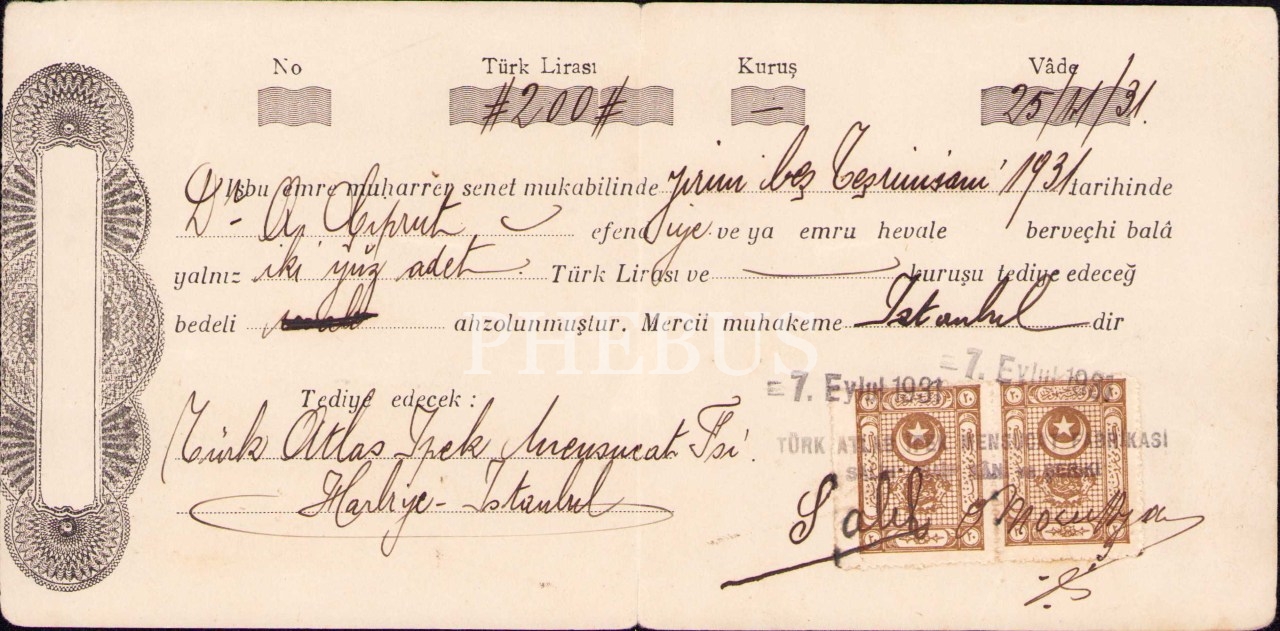 No Türk Lirası Kuruş Vâde
#200# — 25/11/31.
İşbu emre muharrer senet mukabilinde yirmi beş Teşrinisani 1931 tarihinde
Dr A. Ciprut efendiye ve ya emru hevale berveçhi balâ
yalnız iki yüz adet Türk Lirası ve kuruşu tediye edeceğ
bedeli ahzolunmuştur. Mercii muhakeme İstanbul dir
PHEBUS
= 7. Eylul 1931 = 7. Eylul 1931
Tediye edecek :
Türk Atlas İpek Mensucat Fsi.
TÜRK ATLAS İPEK MENSUCAT FABRİKASI
Harbiye - İstanbul
Salih